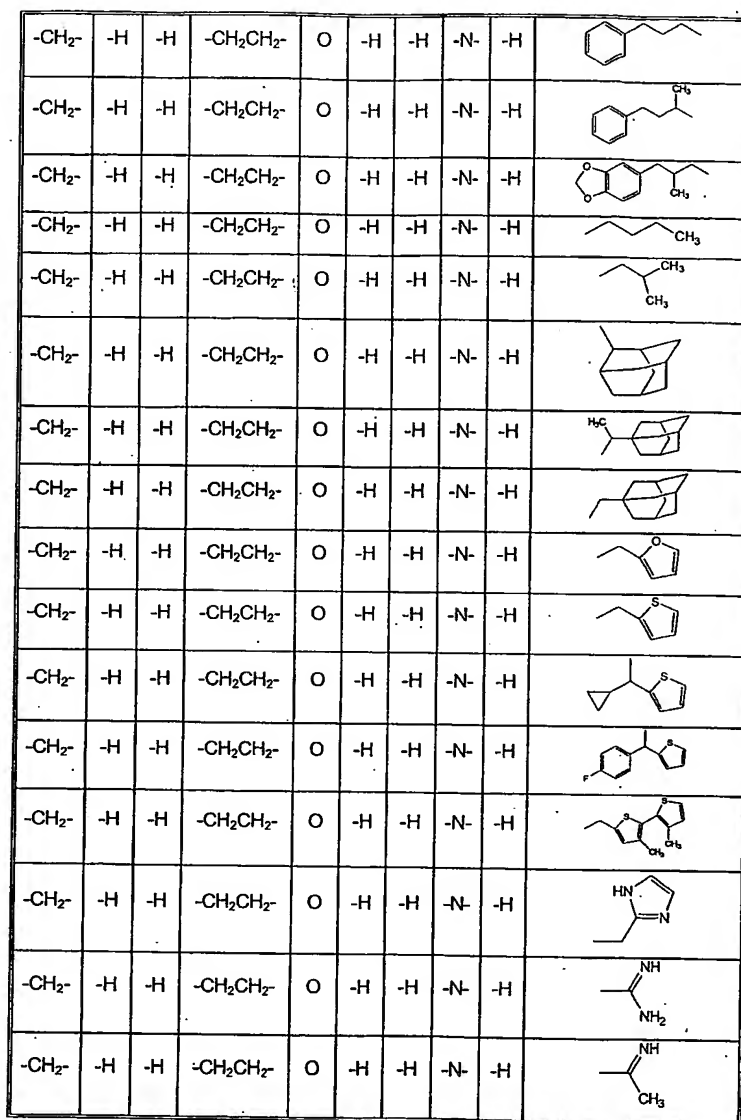 -CH₂- -H -H -CH₂CH₂- O -H -H -N- -H
CH₃
-CH₂- -H -H -CH₂CH₂- O -H -H -N- -H
-CH₂- -H -H -CH₂CH₂- O -H -H -N- -H O O CH₃
-CH₂- -H -H -CH₂CH₂- O -H -H -N- -H CH₃
-CH₂- -H -H -CH₂CH₂- O -H -H -N- -H CH₃
CH₃
-CH₂- -H -H -CH₂CH₂- O -H -H -N- -H
-CH₂- -H -H -CH₂CH₂- O -H -H -N- -H H₃C
-CH₂- -H -H -CH₂CH₂- O -H -H -N- -H
-CH₂- -H -H -CH₂CH₂- O -H -H -N- -H O
-CH₂- -H -H -CH₂CH₂- O -H -H -N- -H S
-CH₂- -H -H -CH₂CH₂- O -H -H -N- -H S
-CH₂- -H -H -CH₂CH₂- O -H -H -N- -H S
F
-CH₂- -H -H -CH₂CH₂- O -H -H -N- -H S S
CH₃ CH₃
-CH₂- -H -H -CH₂CH₂- O -H -H -N- -H HN N
NH
-CH₂- -H -H -CH₂CH₂- O -H -H -N- -H
NH₂
NH
-CH₂- -H -H -CH₂CH₂- O -H -H -N- -H
CH₃